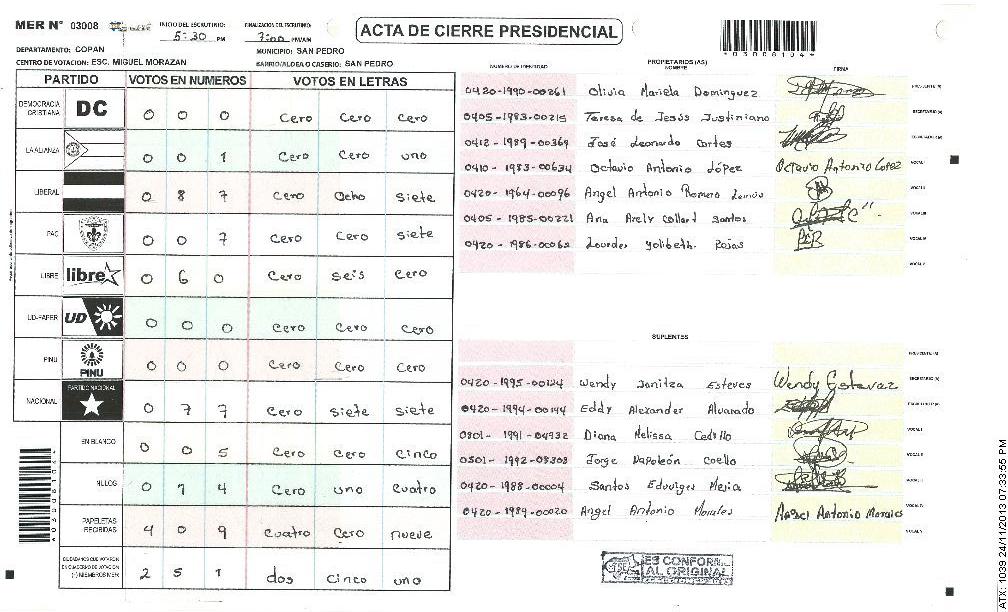 MER N° 03008
INICIO DEL ESCRUTINIO: 5:30 PM
FINALIZACION DEL ESCRUTINIO: 7:00 PM/AM
ACTA DE CIERRE PRESIDENCIAL
*03008104*
DEPARTAMENTO: COPAN
MUNICIPIO: SAN PEDRO
CENTRO DE VOTACION: ESC. MIGUEL MORAZAN
BARRIO/ALDEA O CASERIO: SAN PEDRO
PARTIDO VOTOS EN NUMEROS VOTOS EN LETRAS
DEMOCRACIA CRISTIANA DC 0 0 0 Cero Cero Cero
LA ALIANZA 0 0 1 Cero Cero uno
LIBERAL 0 8 7 Cero Ocho Siete
PAC 0 0 7 Cero Cero siete
LIBRE libre 0 6 0 Cero seis Cero
UD-FAPER UD 0 0 0 Cero Cero Cero
PINU PINU 0 0 0 Cero Cero Cero
NACIONAL PARTIDO NACIONAL 0 7 7 Cero siete siete
EN BLANCO 0 0 5 Cero Cero Cinco
NULOS 0 1 4 Cero uno Cuatro
PAPELETAS RECIBIDAS 4 0 9 Cuatro Cero nueve
CIUDADANOS QUE VOTARON EN CUADERNO DE VOTACION (+) MIEMBROS MER 2 5 1 dos Cinco uno
NUMERO DE IDENTIDAD
PROPIETARIOS (AS)
NOMBRE
FIRMA
0420-1990-00261 Olivia Mariela Dominguez
0405-1983-00215 Teresa de Jesús Justiniano
0412-1989-00369 José Leonardo Cortes
0410-1983-00634 Octavio Antonio López Octavio Antonio Lopez
0420-1964-00096 Angel Antonio Romero
0405-1985-00221 Ana Arely Collart Santos
0420-1986-00068 Lourdes Yolibeth Rojas
SUPLENTES
0420-1995-00124 Wendy Janitza Esteves Wendy Estevez
0420-1994-00144 Eddy Alexander Alvarado
0801-1991-04932 Diana Melissa Cedillo
0501-1992-08308 Jorge Napoleón Coello
0420-1988-00004 Santos Eduviges Mejia
0420-1989-00020 Angel Antonio Morales Angel Antonio Morales
ES CONFORME AL ORIGINAL
ATX: 1039 24/11/2013 07:33:55 PM